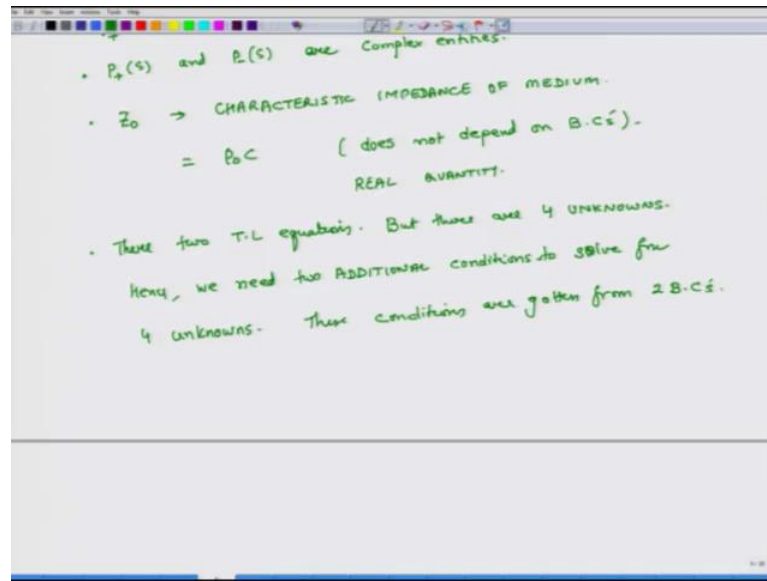 • P₊(s) and P₋(s) are complex entities.
• Z₀ → CHARACTERISTIC IMPEDANCE OF MEDIUM.
= ρ₀C (does not depend on B.Cs').
REAL QUANTITY.
• There two T.L equations. But there are 4 UNKNOWNS.
Hence, we need two ADDITIONAL conditions to solve for
4 unknowns. These conditions are gotten from 2 B.Cs'.